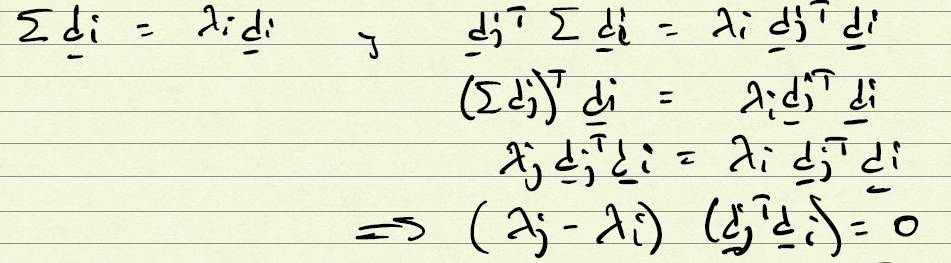 Σ d̲i = λi d̲i , d̲jᵀ Σ d̲i = λi d̲jᵀ d̲i
(Σ dj)ᵀ d̲i = λi d̲jᵀ d̲i
λj d̲jᵀ d̲i = λi d̲jᵀ d̲i
⇒ (λj - λi) (d̲jᵀ d̲i) = 0